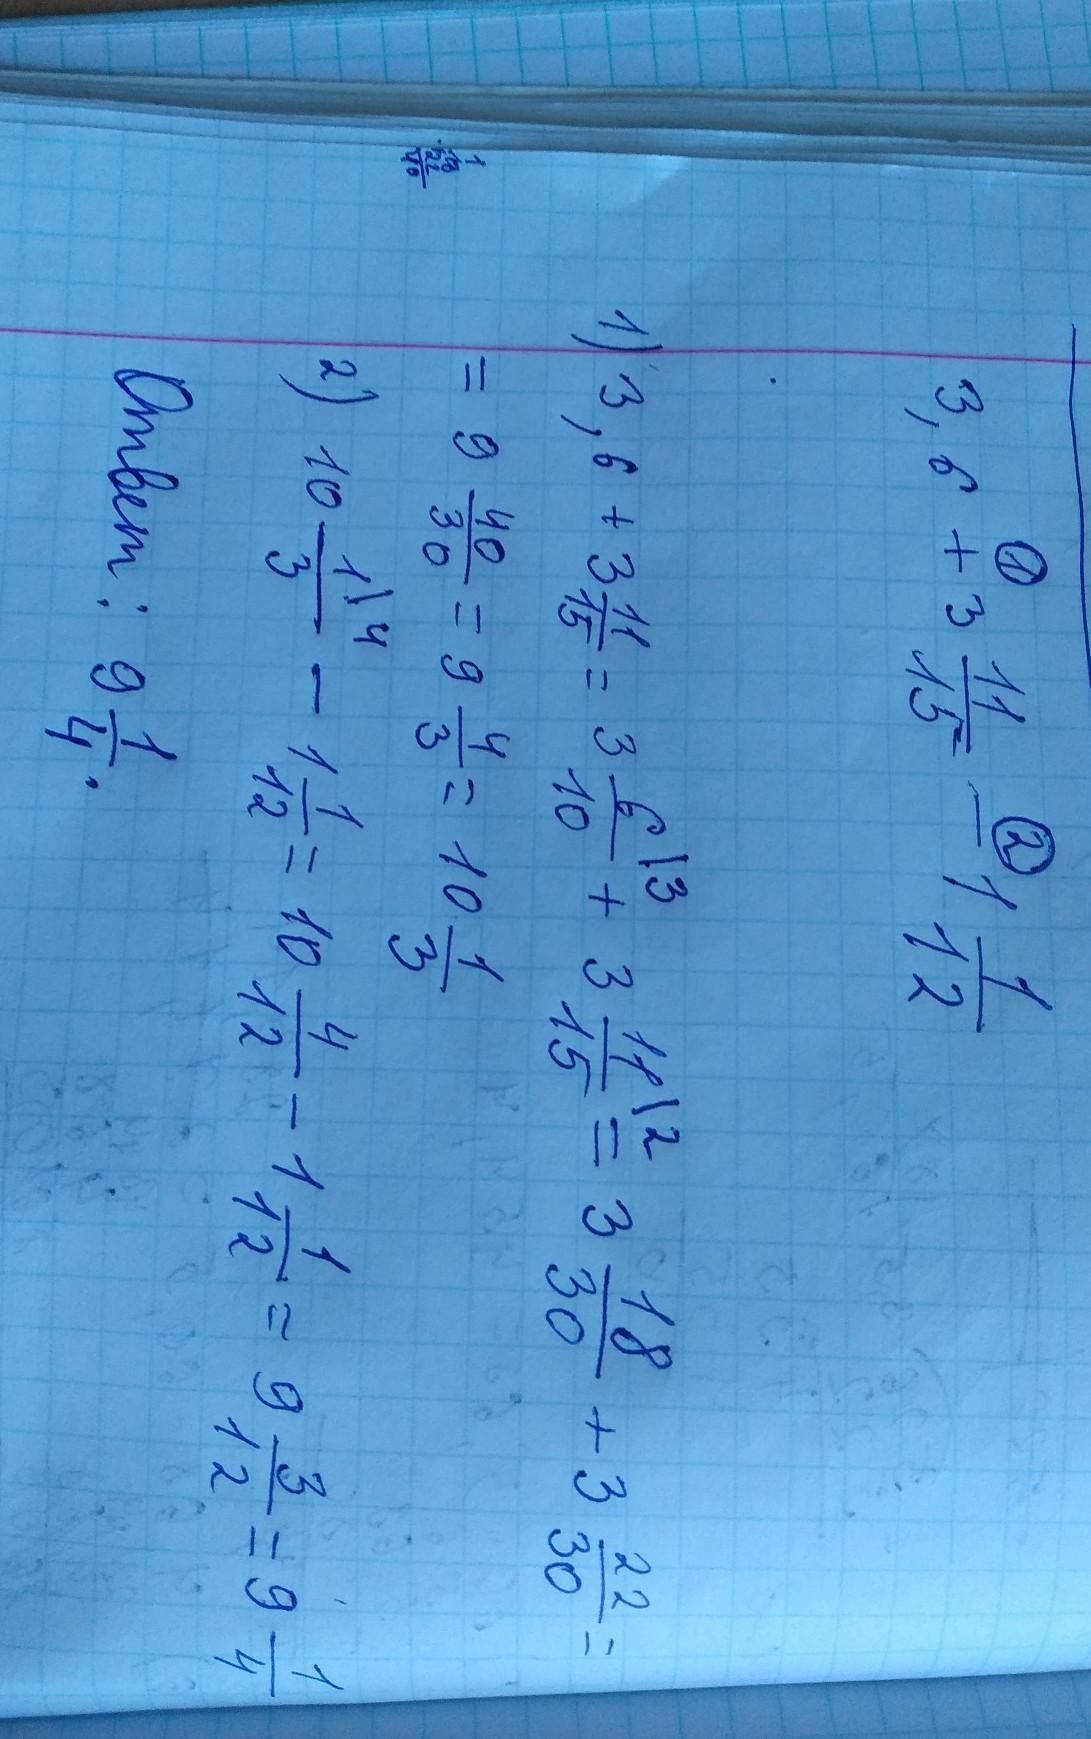 3,6 + 3 11/15 = - 1 1/12
1 2
1) 3,6 + 3 11/15 = 3 6/10 \3 + 3 11/15 \2 = 3 18/30 + 3 22/30 =
= 9 40/30 = 9 4/3 = 10 1/3
2) 10 1/3 \4 - 1 1/12 = 10 4/12 - 1 1/12 = 9 3/12 = 9 1/4
Ответ: 9 1/4.